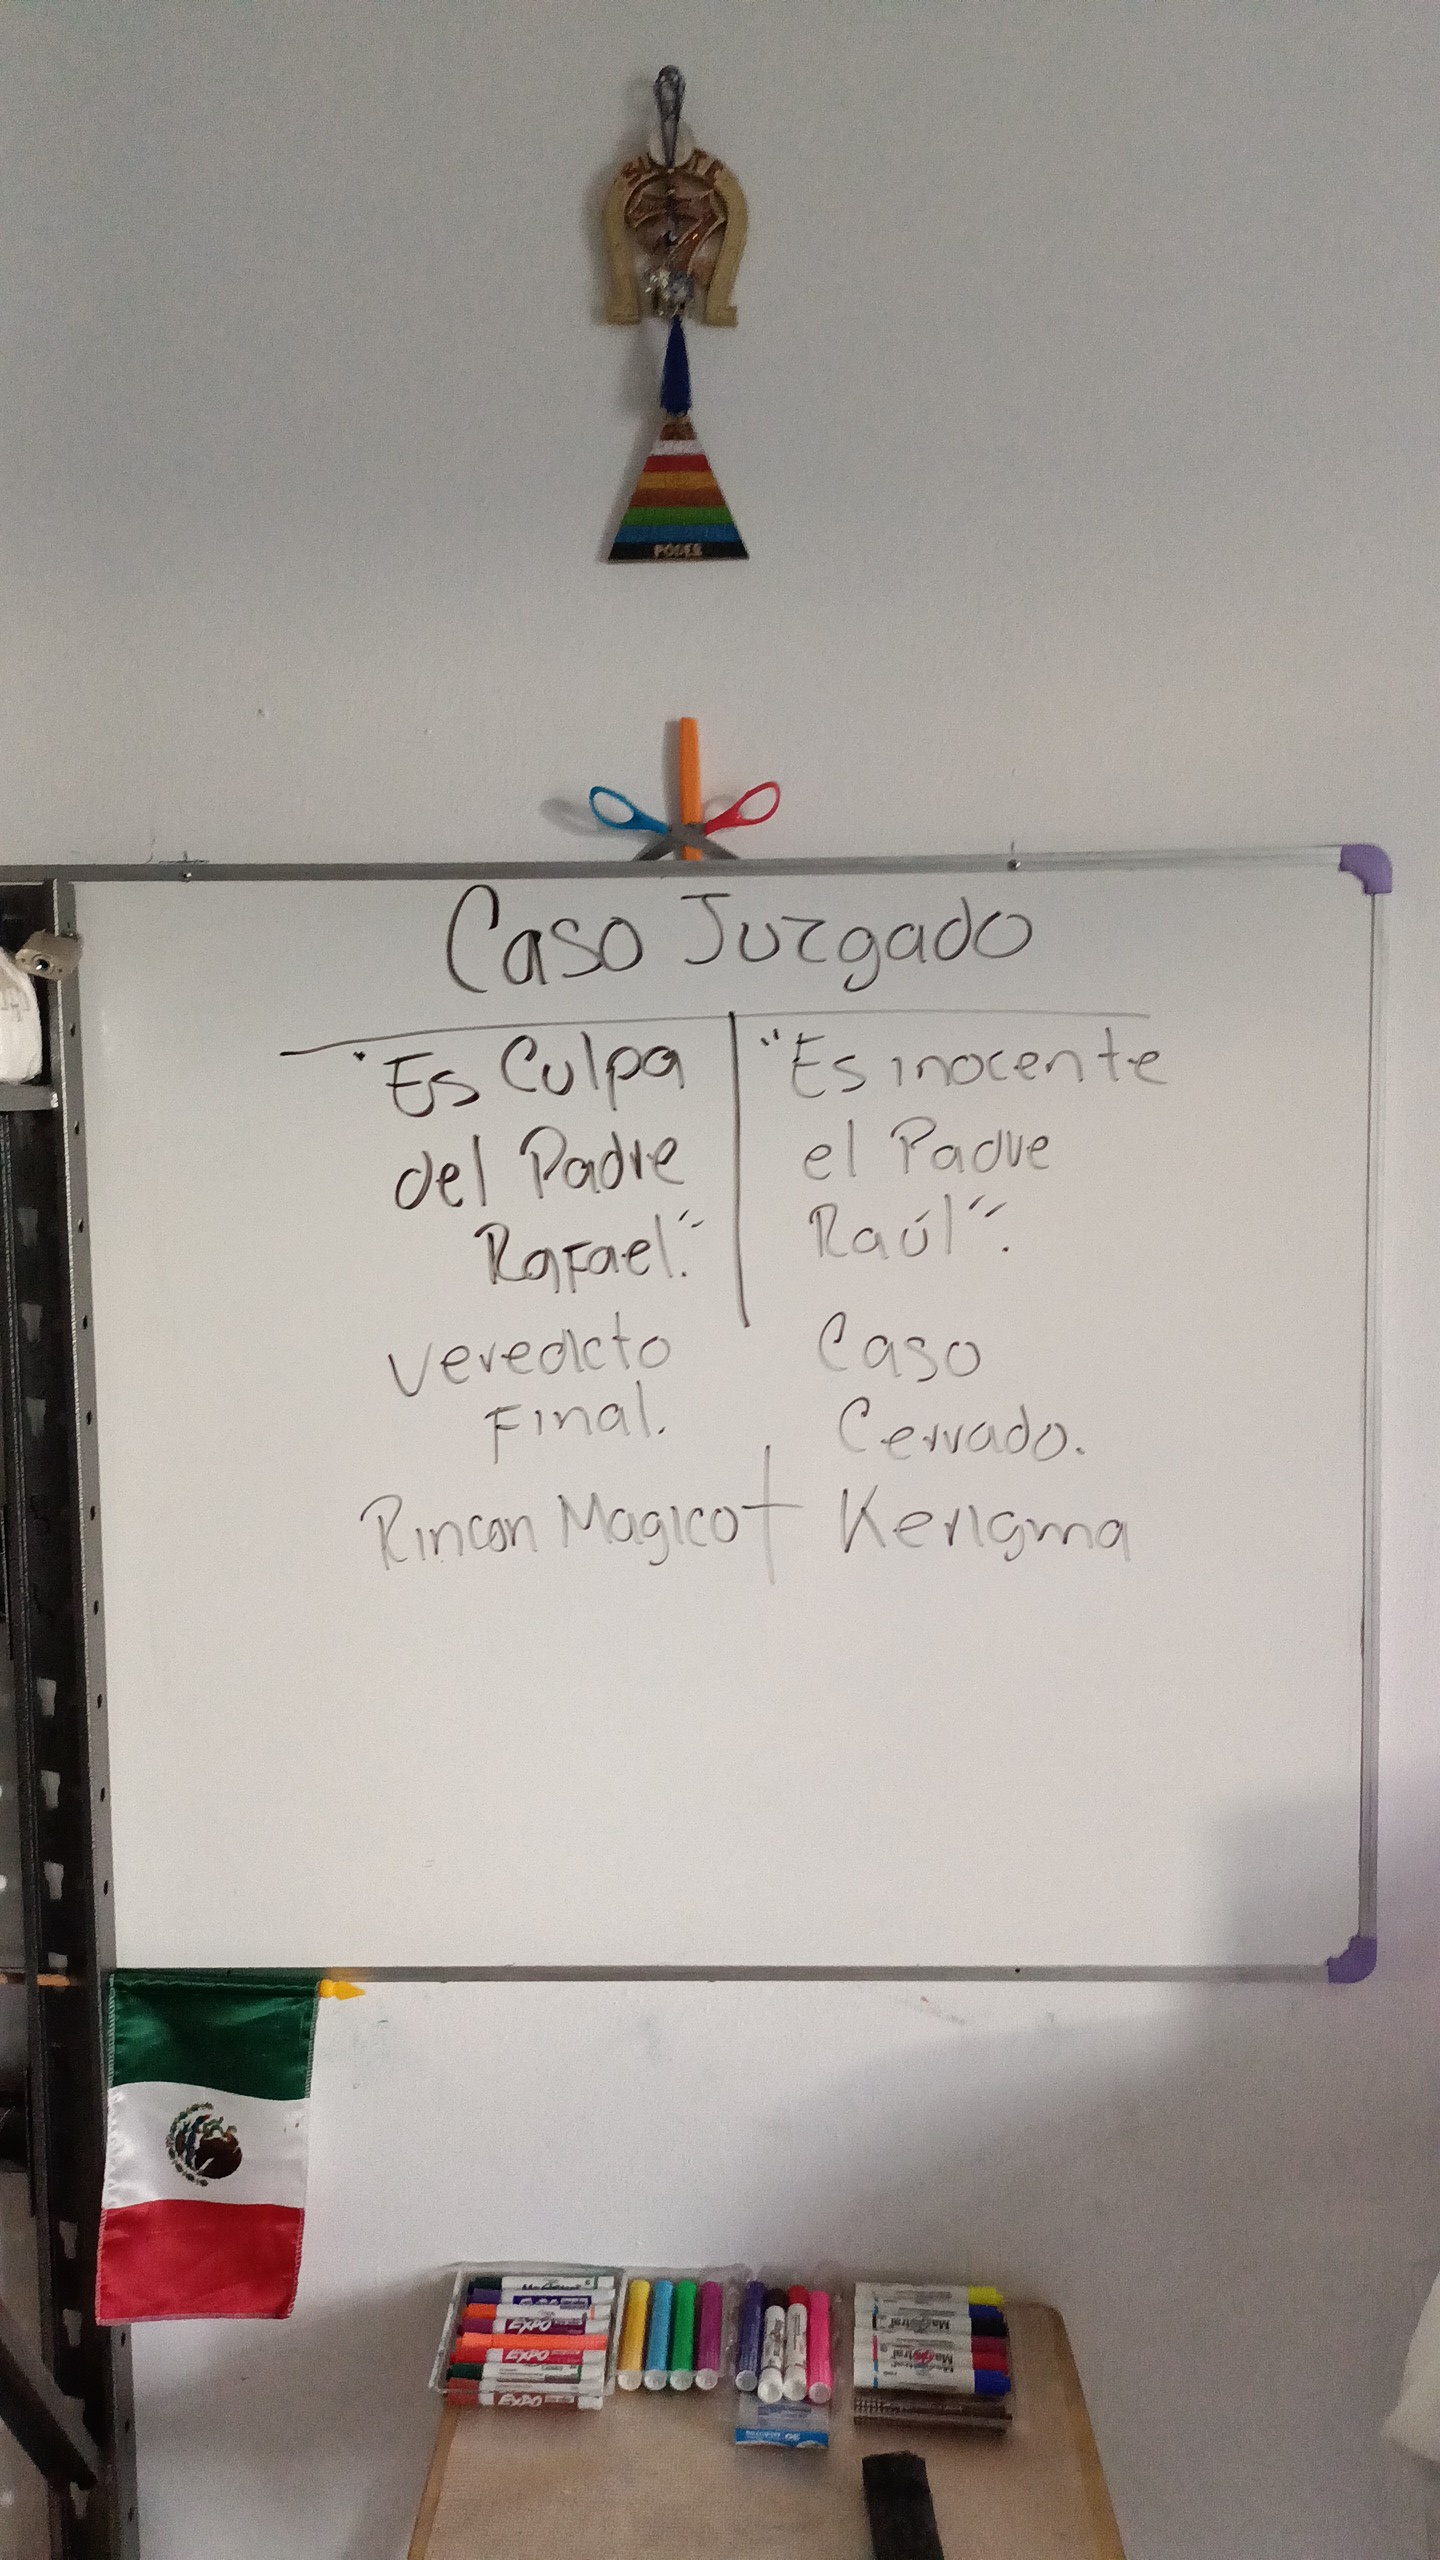 SUERTE
PODER
Caso Juzgado
"Es Culpa
del Padre
Rafael."
"Es inocente
el Padre
Raúl".
Veredicto
Final.
Caso
Cerrado.
Rincon Magico + Kerigma
EXPO
EXPO
EXPO
Magistral
Magistral